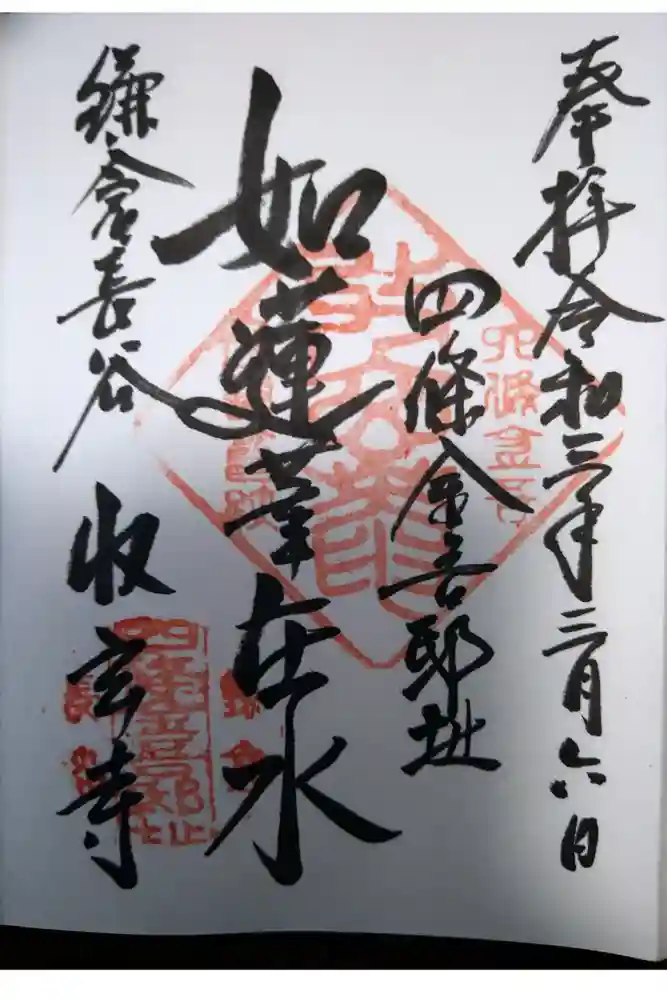 奉拝 令和三年三月六日
四條金吾邸址
如蓮華在水
鎌倉長谷 收玄寺